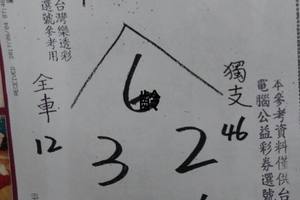 台灣樂透彩
選號參考用
全車
獨支
本參考資料僅供台
電腦公益彩券選號
6
12
3
2
46